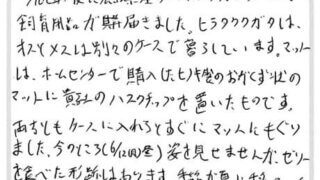 飼育用品が購届きました。ヒラタクワガタは、
オスとメスは別々のケースで暮らしています。マット
は、ホームセンターで購入したヒノキ製のおがくず状の
マットに貴社のハスクチップを置いたものです。
両方ともケースに入れるとすぐにマットにもぐり
ました。今のところ(6/12(金))姿を見せませんが、ゼリー
を食べた形跡はあります。